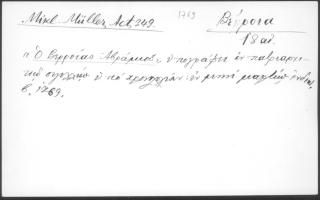 Mikl. Müller, Act. 249. 1769 Βέρροια
18 αἰ.
"Ὁ Βερροίας Ἀβράμιος, ὑπογράφει ἐν πατριαρχι-
κῷ ὑπὸ χρονολογίαν: ἐν μηνὶ μαρτίῳ
β, 1769.